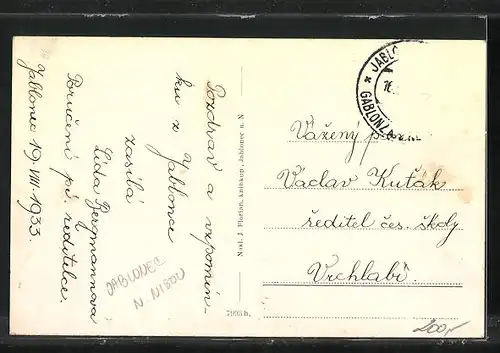 Pozdrav a vzpomín-
ku z Jablonce
zasílá
Lída Bergmannova
Poručení pí. ředitelce.
Jablonec 19.VIII.1933.
JABLONEC
N NISOU
Nakl. J. Florian, knihkup., Jablonec n. N
7993 h.
JABLO
GABLONZ A
16.
Vážený pan
Vaclav Kuťák
ředitel čes. školy
Vrchlabí
200,-